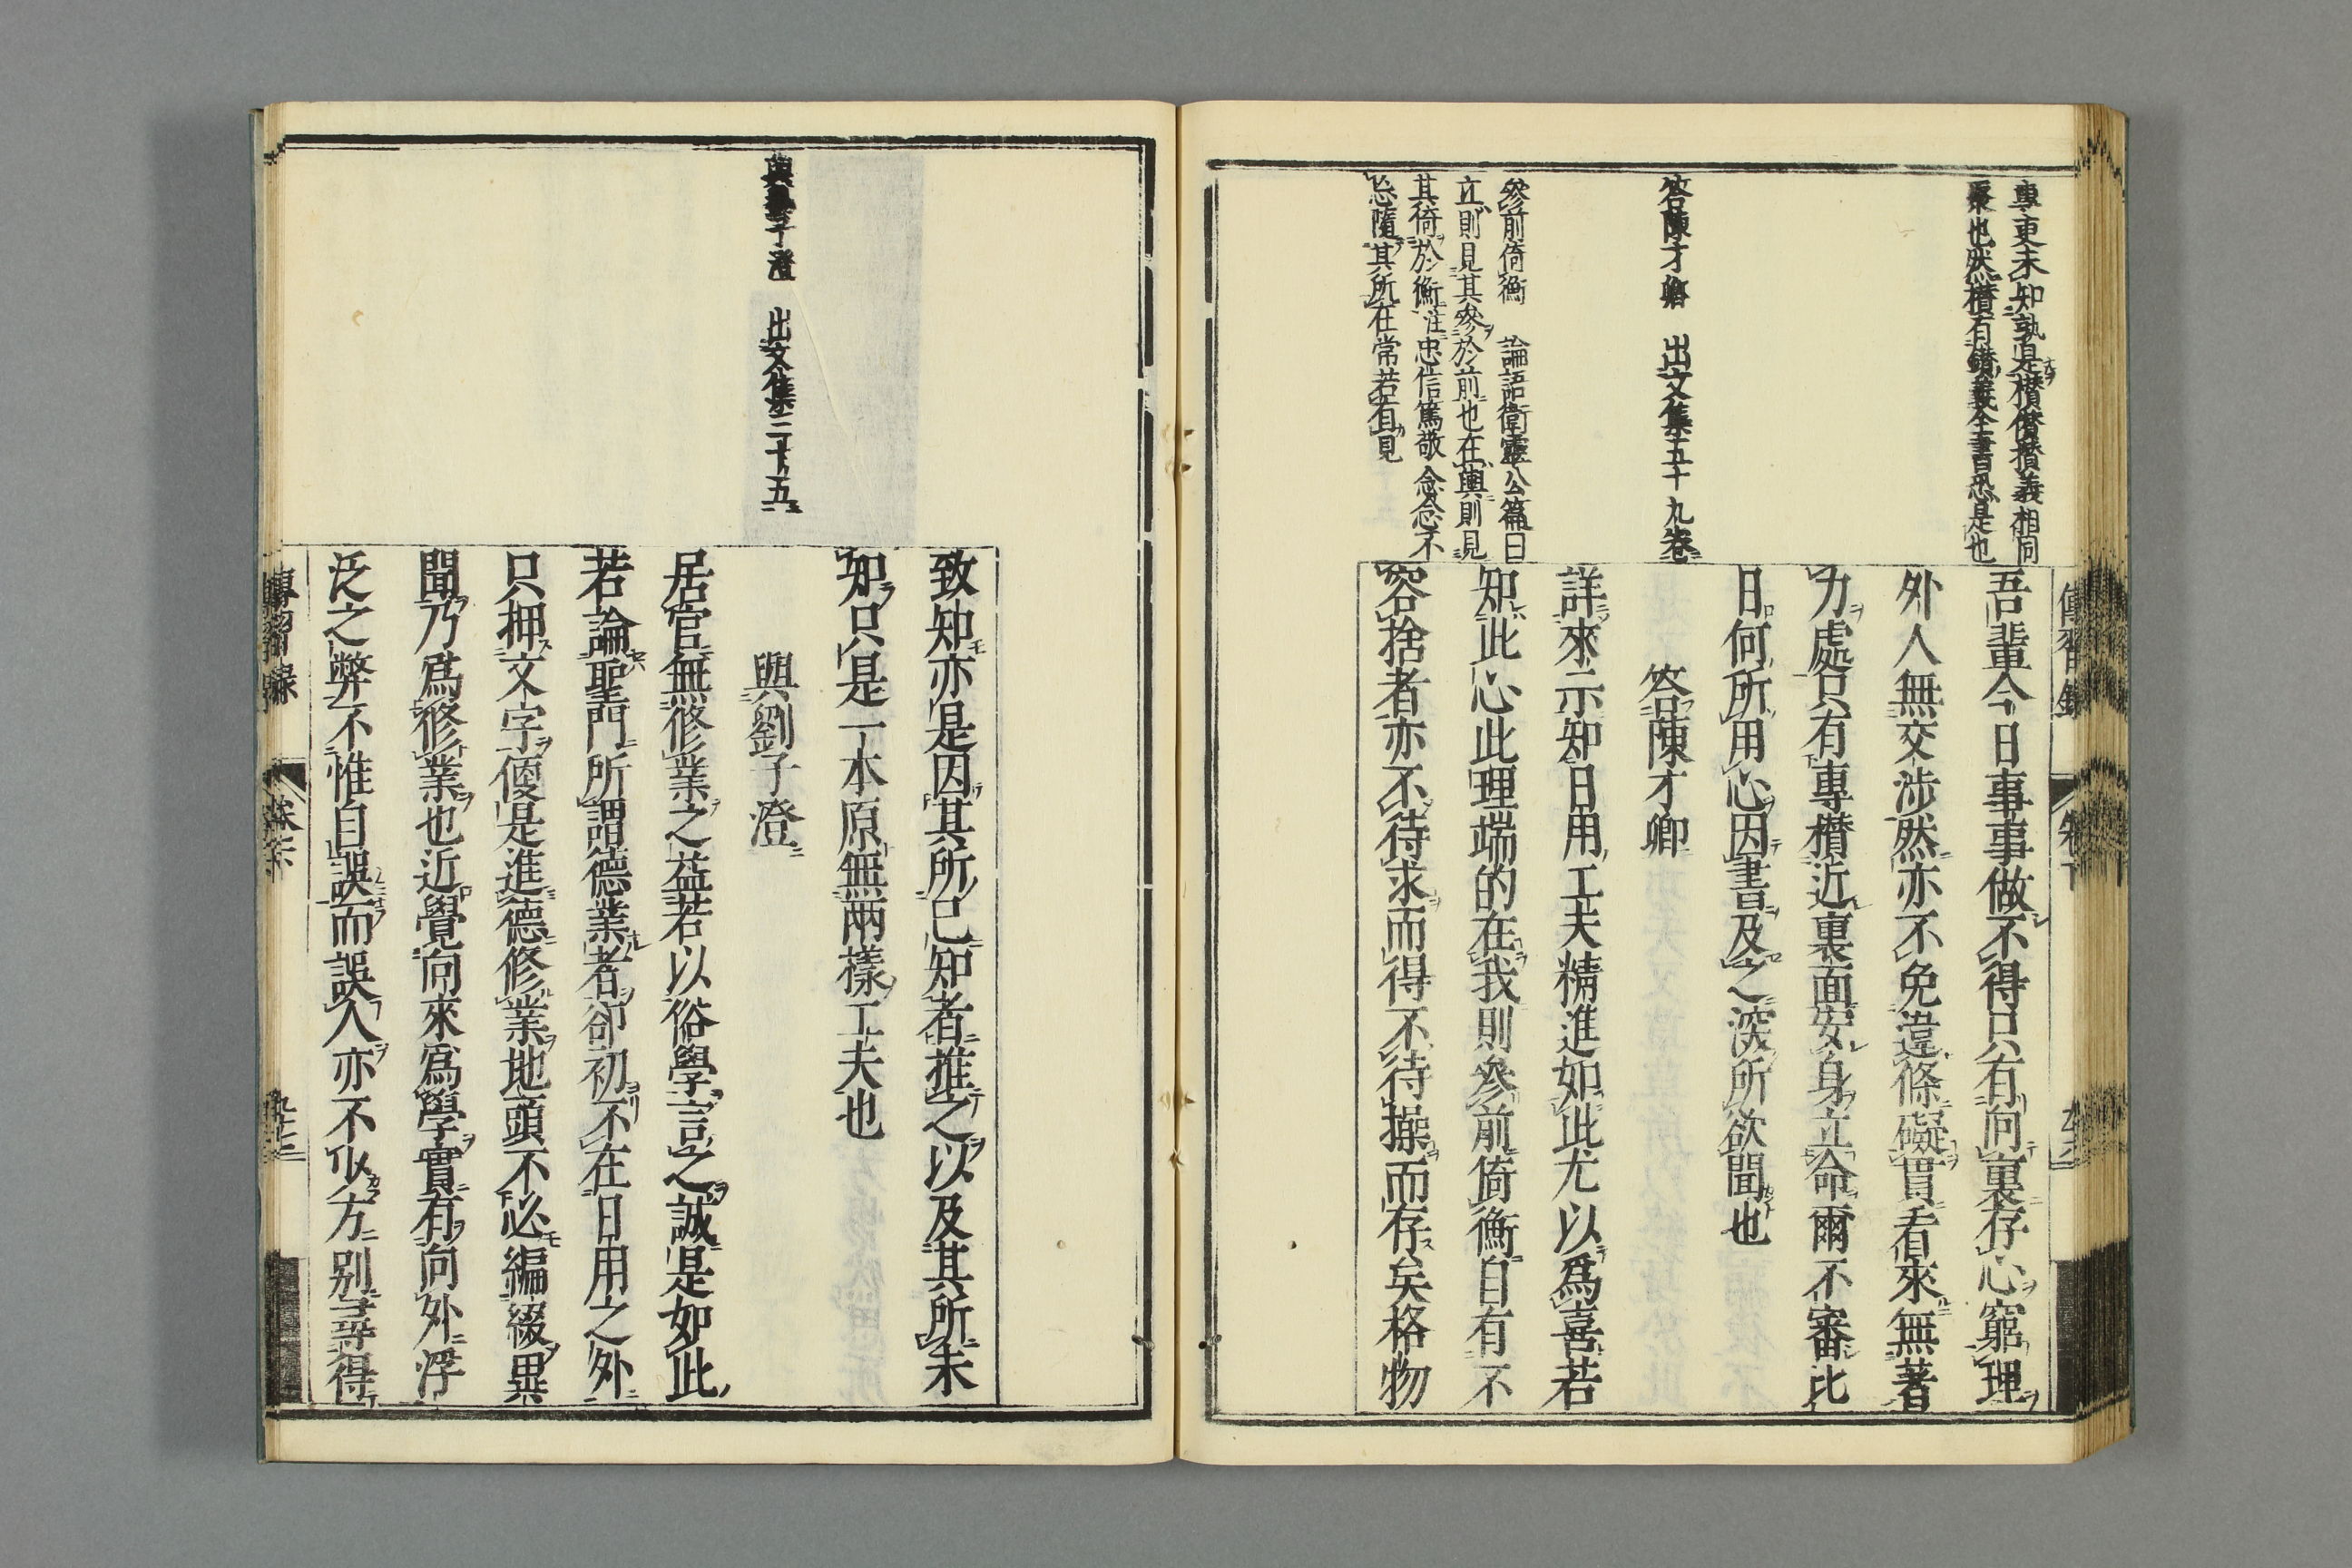 專更未知孰是横儹攅義相同
聚也然横有鑚義全書恐是也
答陳才卿 出文集五十九卷
參前倚衡 論語衛靈公篇曰
立則見其參於前也在輿則見
其倚於衡注忠信篤敬念念不
忘隨其所在常若有見
吾輩今日事事做不得只有向裏存心窮理
外人無交涉然亦不免違條礙貫看來無著
力處只有專櫕近裏面安身立命爾不審比
日何所用心因書及之深所欲聞也
答陳才卿
詳來示知日用工夫精進如此尤以爲喜若
知此心此理端的在我則參前倚衡自有不
容捨者亦不待求而得不待操而存矣格物
與劉子澄 出文集三十五
致知亦是因其所已知者推之以及其所未
知只是一本原無兩樣工夫也
與劉子澄
居官無修業之益若以俗學言之誠是如此
若論聖門所謂德業者卻初不在日用之外
只押文字便是進德修業地頭不必編綴異
聞乃爲修業也近覺向來爲學實有向外浮
泛之弊不惟自誤而誤人亦不少方别尋得
傳習錄 卷下